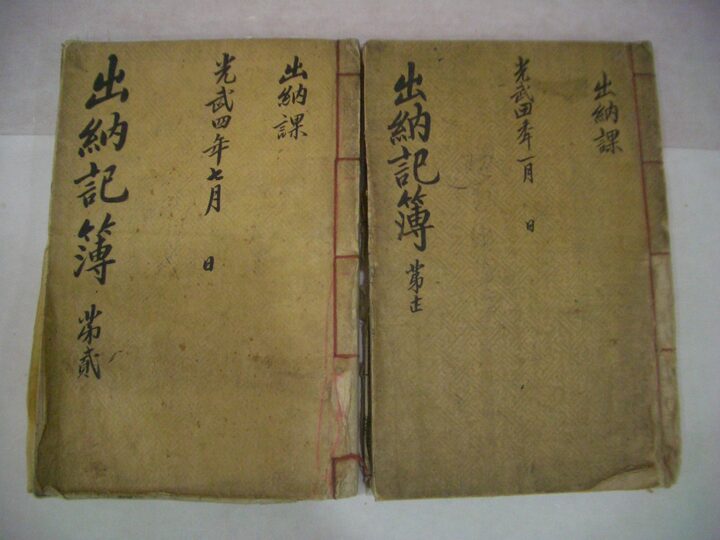 出納課
光武四年一月 日
出納記簿 第
出納課
光武四年七月 日
出納記簿 第貳